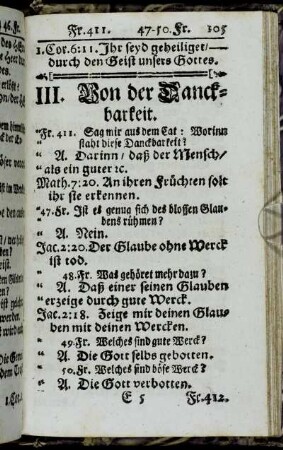 Fr. 411. 47-50. Fr. 105
1. Cor. 6:11. Ihr seyd geheiliget/
durch den Geist unsers Gottes.
III. Von der Danck-
barkeit.
"Fr. 411. Sag mir aus dem Cat: Worinn
" staht diese Danckbarkeit?
" A. Darinn/ daß der Mensch/
"als ein guter ꝛc.
Math. 7:20. An ihren Früchten solt
ihr sie erkennen.
"47-Fr. Ist es genug sich des blossen Glau-
" dens rühmen?
" A. Nein.
Jac. 2:20. Der Glaube ohne Werck
ist tod.
" 48. Fr. Was gehöret mehr dazu?
" A. Daß einer seinen Glauben
"erzeige durch gute Werck.
Jac. 2:18. Zeige mir deinen Glau-
ben mit deinen Wercken.
" 49. Fr. Welches sind gute Werck?
" A. Die Gott selbs gebotten.
" 50. Fr. Welches sind böse Werck?
" A. Die Gott verbotten.
E 5 Fr. 412.